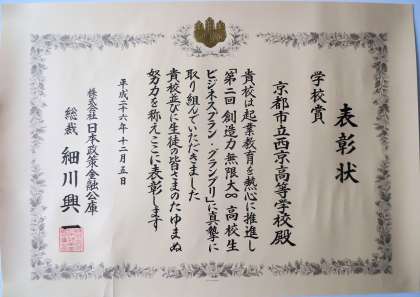 表彰状
学校賞
京都市立西京高等学校殿
貴校は起業教育を熱心に推進し
「第二回 創造力無限大∞ 高校生
ビジネスプラン・グランプリ」に真摯に
取り組んでいただきました
貴校並びに生徒の皆さまのたゆまぬ
努力を称えここに表彰します
平成二十六年十二月五日
株式会社日本政策金融公庫
総裁 細川興一